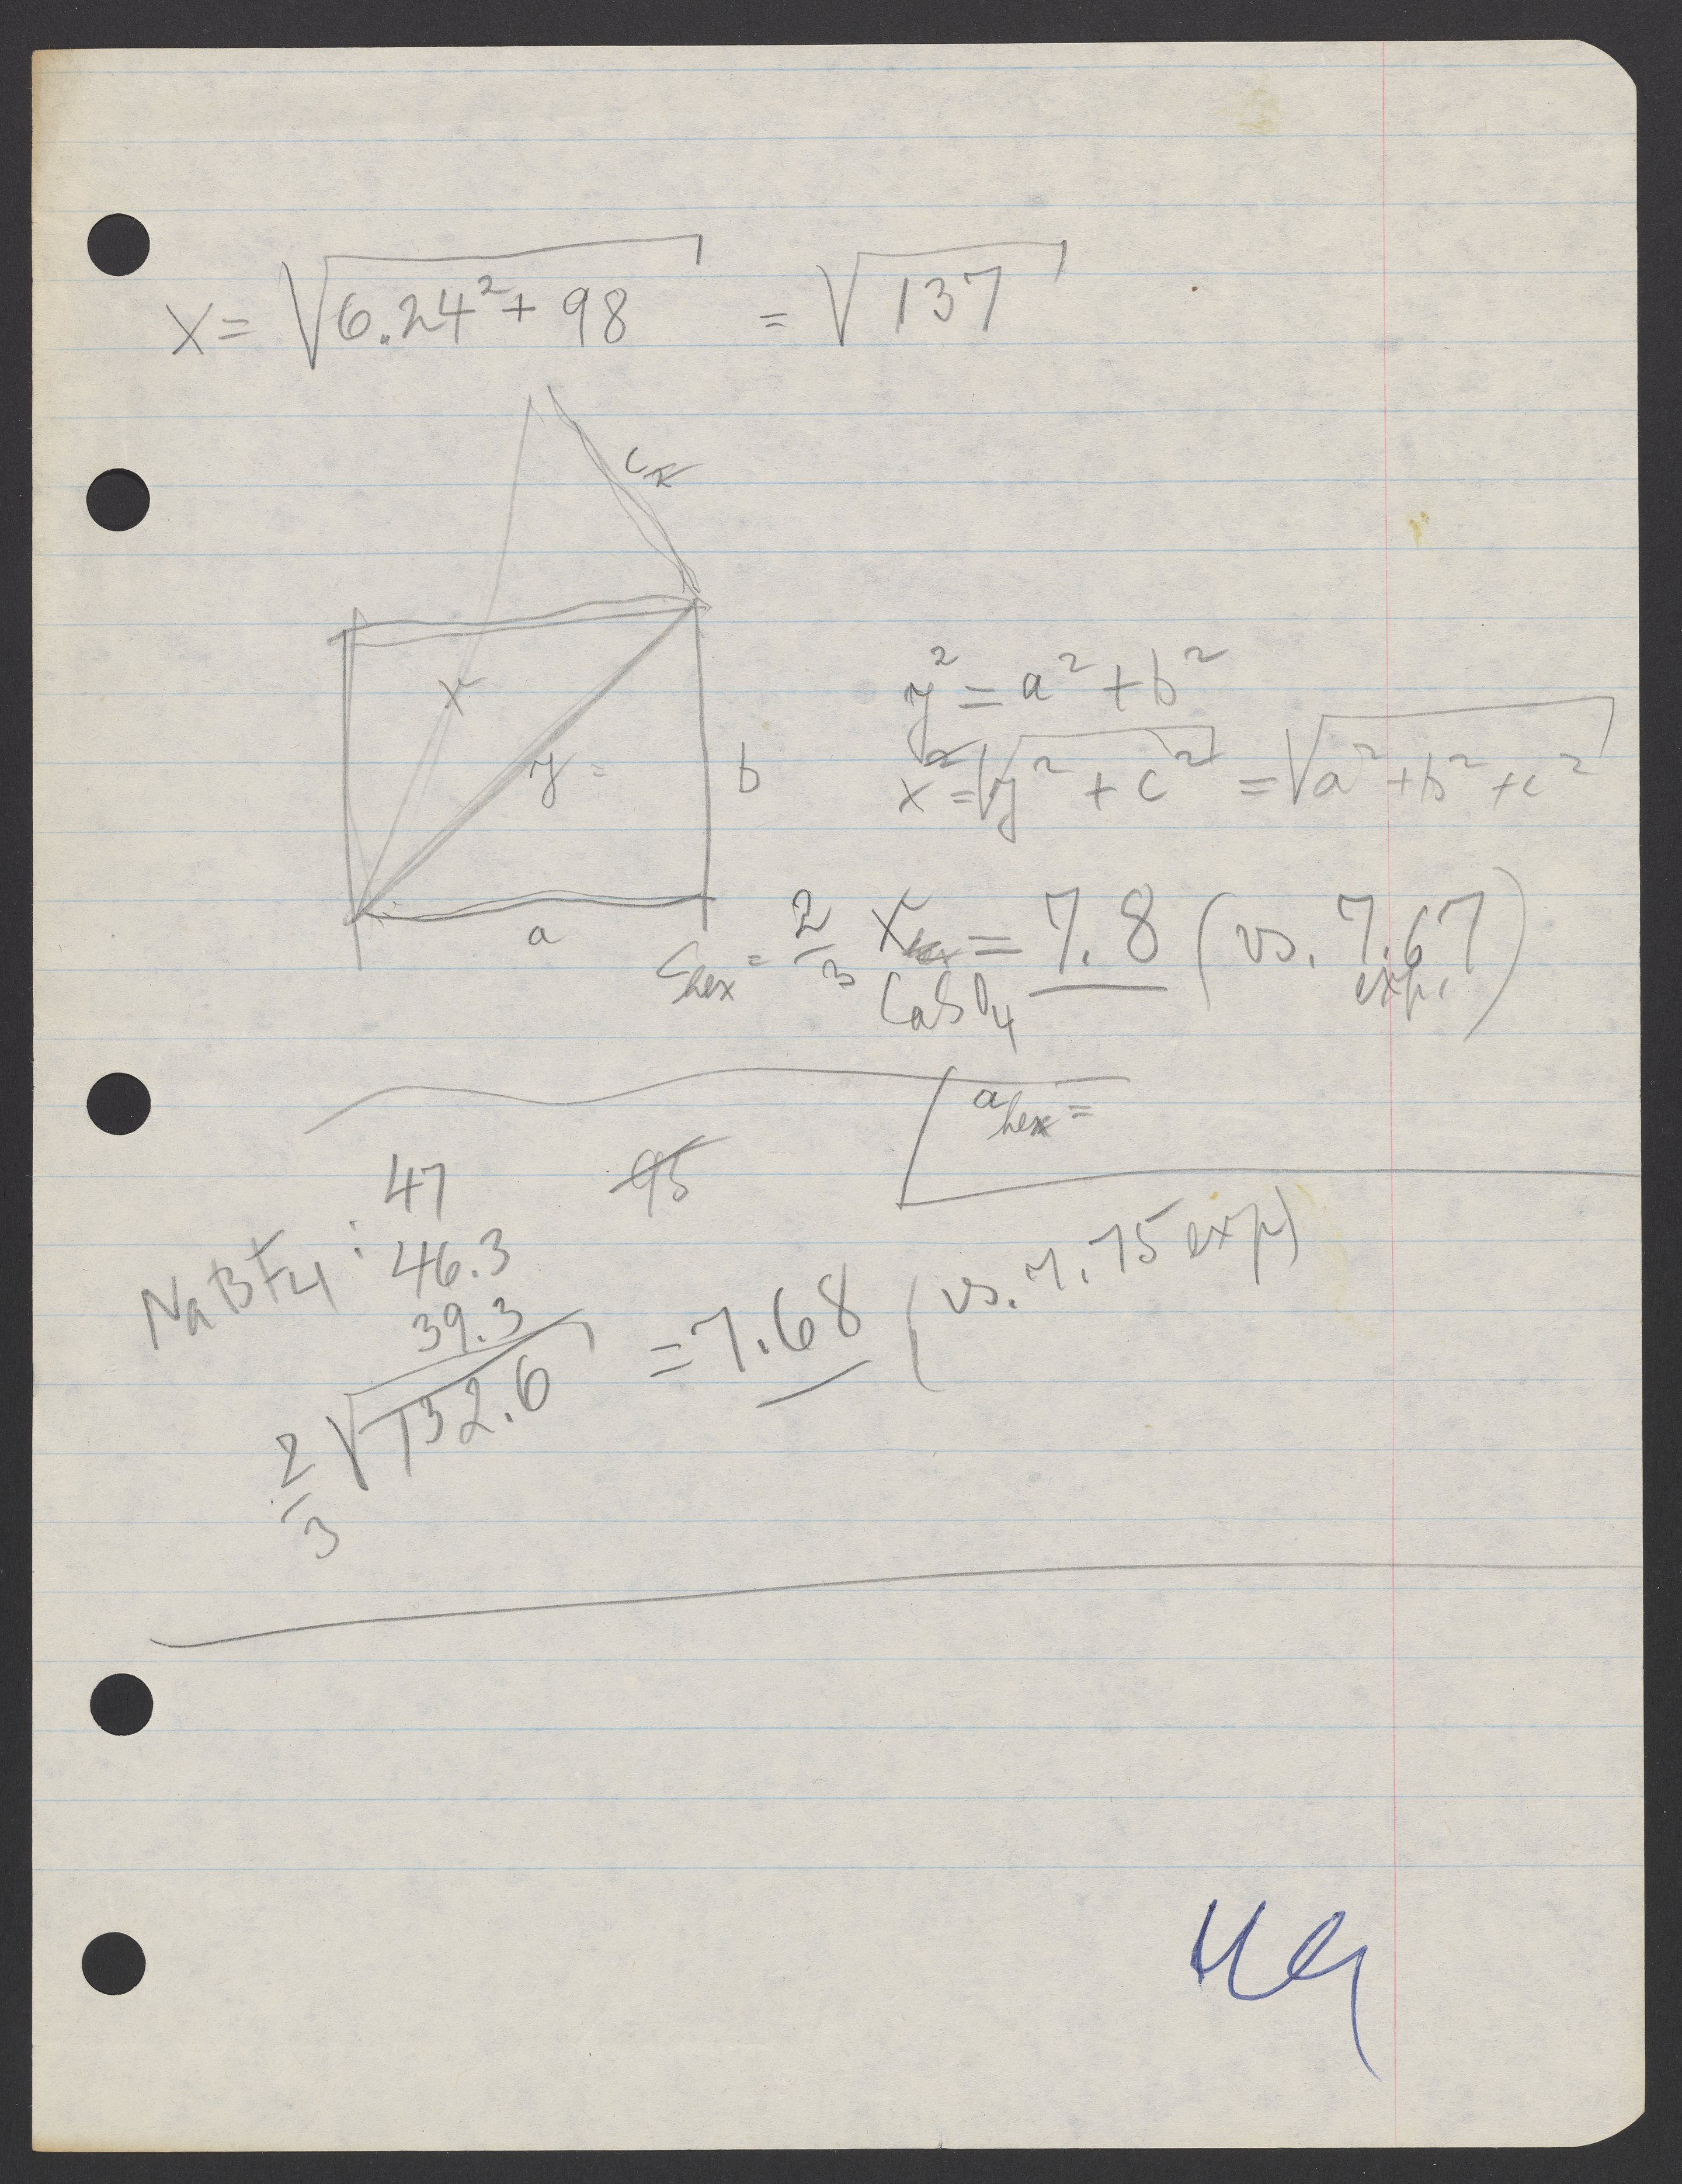 x = √6.24² + 98 = √137
c
x
y =
b
a
y² = a² + b²
x = √y² + c² = √a² + b² + c²
c hex = 2/3 x = 7.8 (vs. 7.67 exp.)
CaSO4
a hex =
47
95
NaBF4 : 46.3
39.3
2/3 √132.6 = 7.68 (vs. 7.75 exp)